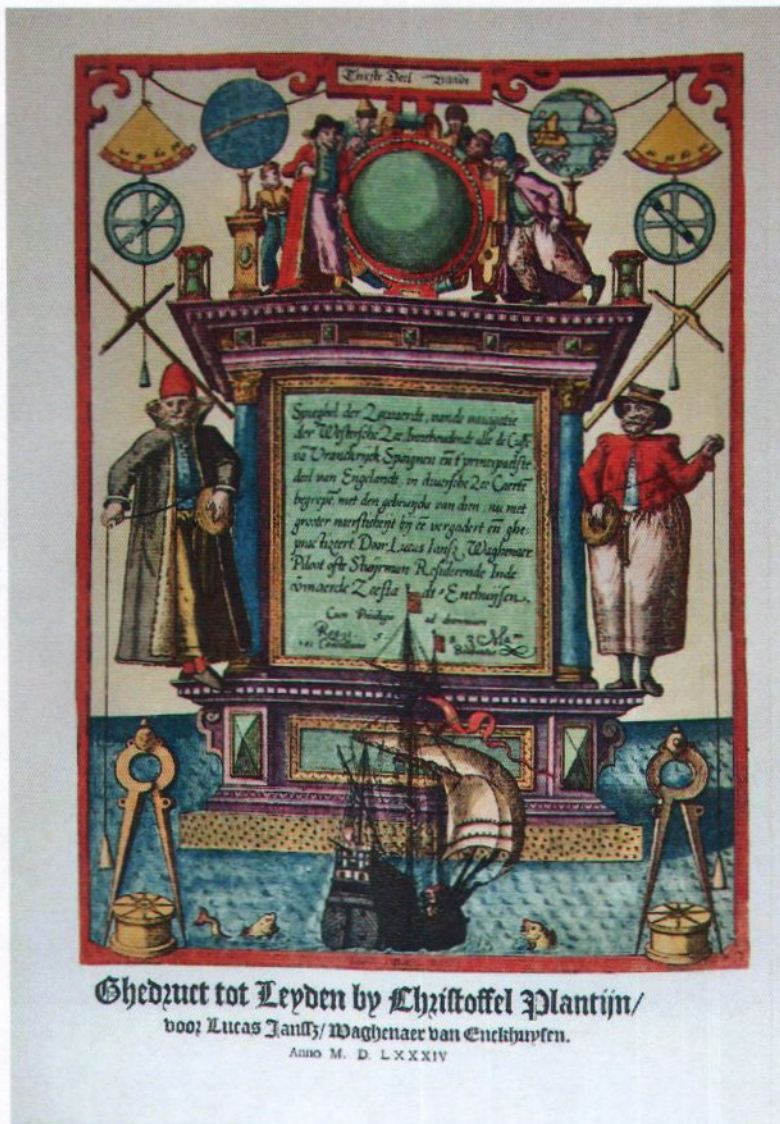 Eerste Deel vande
Spieghel der Zeevaerdt, vande navigatie
der Westersche Zee, Innehoudende alle de Custe
va Vranckrijck Spaignen en t' principaelste
deel van Engelandt, in diversche Zee Caerte
begrepe, met den gebruijcke van dien, nu met
grooter naersticheijt bij ee vergadert en ghe-
practizeert. Door Lucas Iansz Waghenaer
Piloot ofte Stuijrman Residerende Inde
vmaerde Zeestadt Enchuijsen.
Cum Privilegio ad decennium
Ghedruct tot Leyden by Christoffel Plantijn/
voor Lucas Janssz/ Waghenaer van Enckhuysen.
Anno M. D. LXXXIV